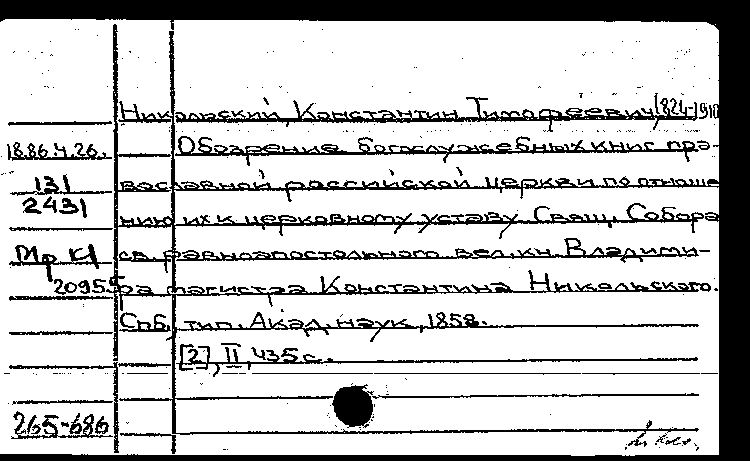 Никольский, Константин Тимофеевич (824-1910
18.86.4.26. Обозрение богослужебных книг пра-
131 вославной российской церкви по отноше
2431 нию их к церковному уставу. Свящ. Собора
св. равноапостольного вел. кн. Владими-
20955 ра магистра Константина Никольского.
Спб, тип. Акад. наук, 1858.
[2], II, 435 с.
265-686